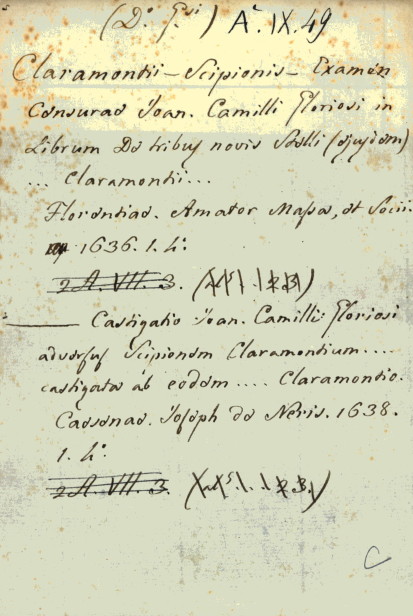 (D.º G.si) A.ª IX. 49
Claramontii - Scipionis - Examen
Censurae Joan. Camilli Gloriosi in
Librum De tribus novis Stellis (ejusdem)
... Claramontii...
Florentiae. Amator Massa, et Socii.
1636. 1. 4.º
2 A. VII. 3.
——— Castigatio Joan. Camilli Gloriosi
adversus Scipionem Claramontium....
castigata ab eodem .... Claramontio.
Caesenae. Joseph de Neris. 1638.
1. 4.º
2 A. VII. 3.
C